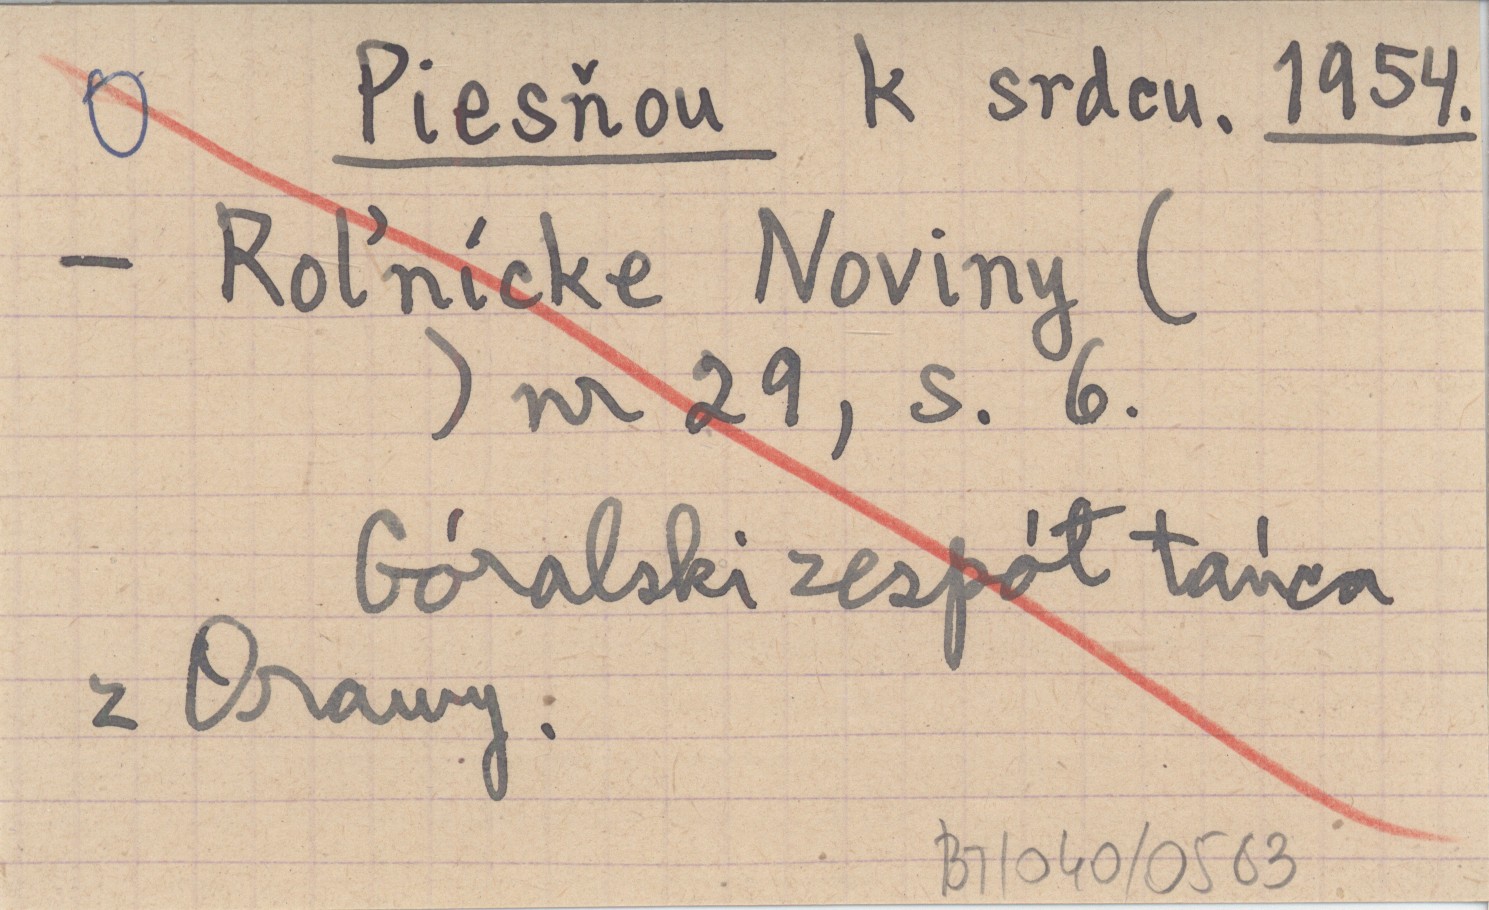 O Piesňou k srdcu. 1954.
– Roľnícke Noviny (
) nr 29, s. 6.
Góralski zespół tańca
z Orawy.
BT/040/0563